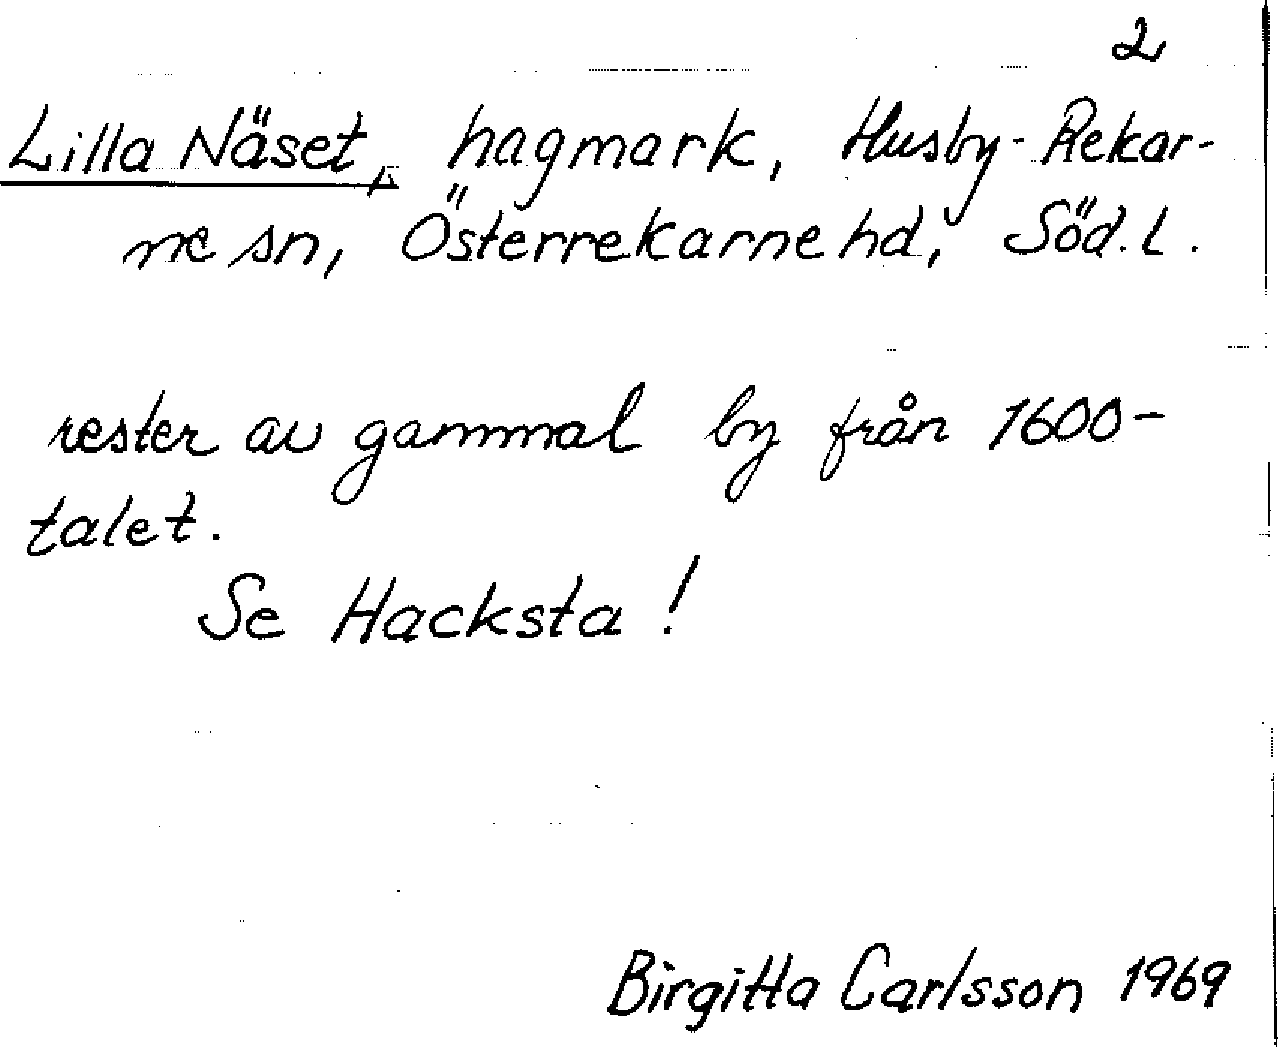 2
Lilla Näset, hagmark, Husby-Rekar-
ne sn, Österrekarne hd, Söd.l.
rester av gammal by från 1600-
talet.
Se Hacksta!
Birgitta Carlsson 1969